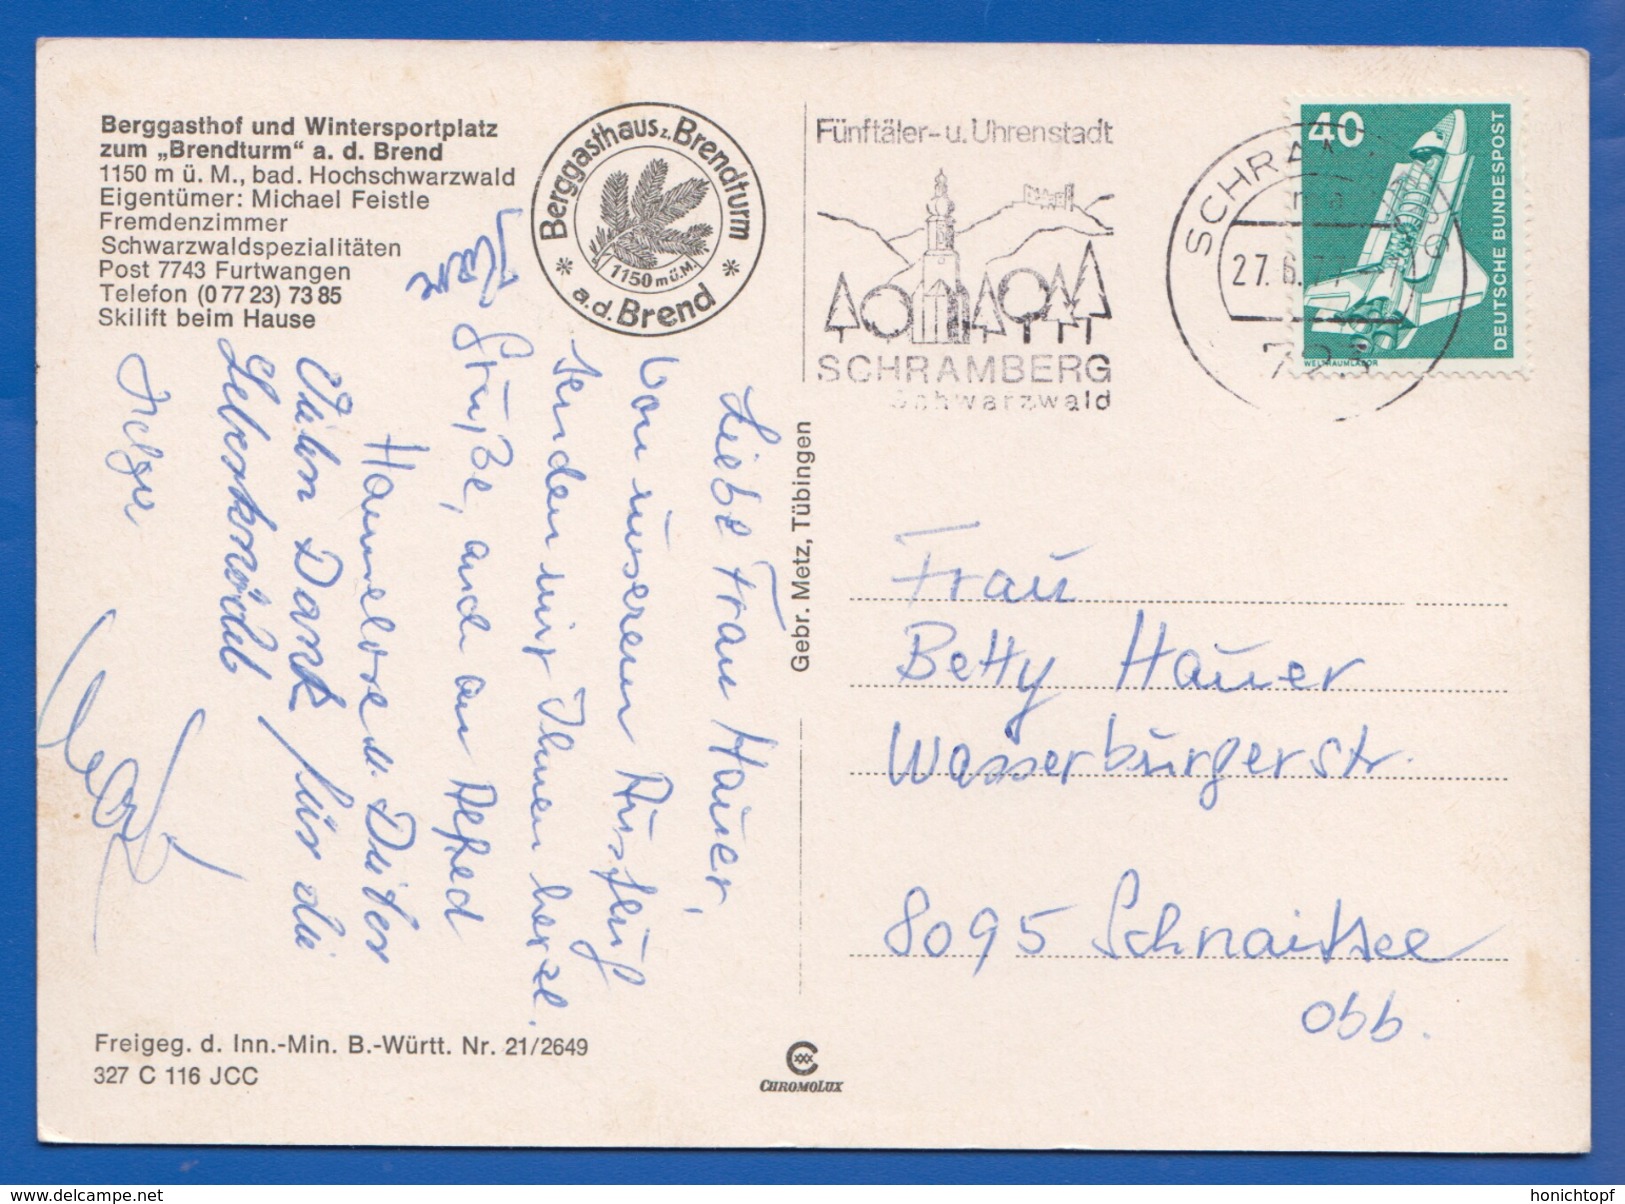 Berggasthof und Wintersportplatz
zum „Brendturm“ a. d. Brend
1150 m ü. M., bad. Hochschwarzwald
Eigentümer: Michael Feistle
Fremdenzimmer
Schwarzwaldspezialitäten
Post 7743 Furtwangen
Telefon (0 77 23) 73 85
Skilift beim Hause
Berggasthaus z. Brendturm
1150 m ü. M.
* a. d. Brend *
Fünftäler- u. Uhrenstadt
SCHRAMBERG
Schwarzwald
27. 6. 77
40
DEUTSCHE BUNDESPOST
WELTRAUMLABOR
Liebe Frau Hauer,
von unserem Ausflug
senden wir Ihnen herzl.
Grüße, auch an Alfred
Hannelore u. Dieter
Vielen Dank für die
Leberknödel
Helga
Gebr. Metz, Tübingen
Frau
Betty Hauer
Wasserburgerstr.
8095 Schnaitsee
Obb.
Freigeg. d. Inn.-Min. B.-Württ. Nr. 21/2649
327 C 116 JCC
CHROMOLUX
honichtopf